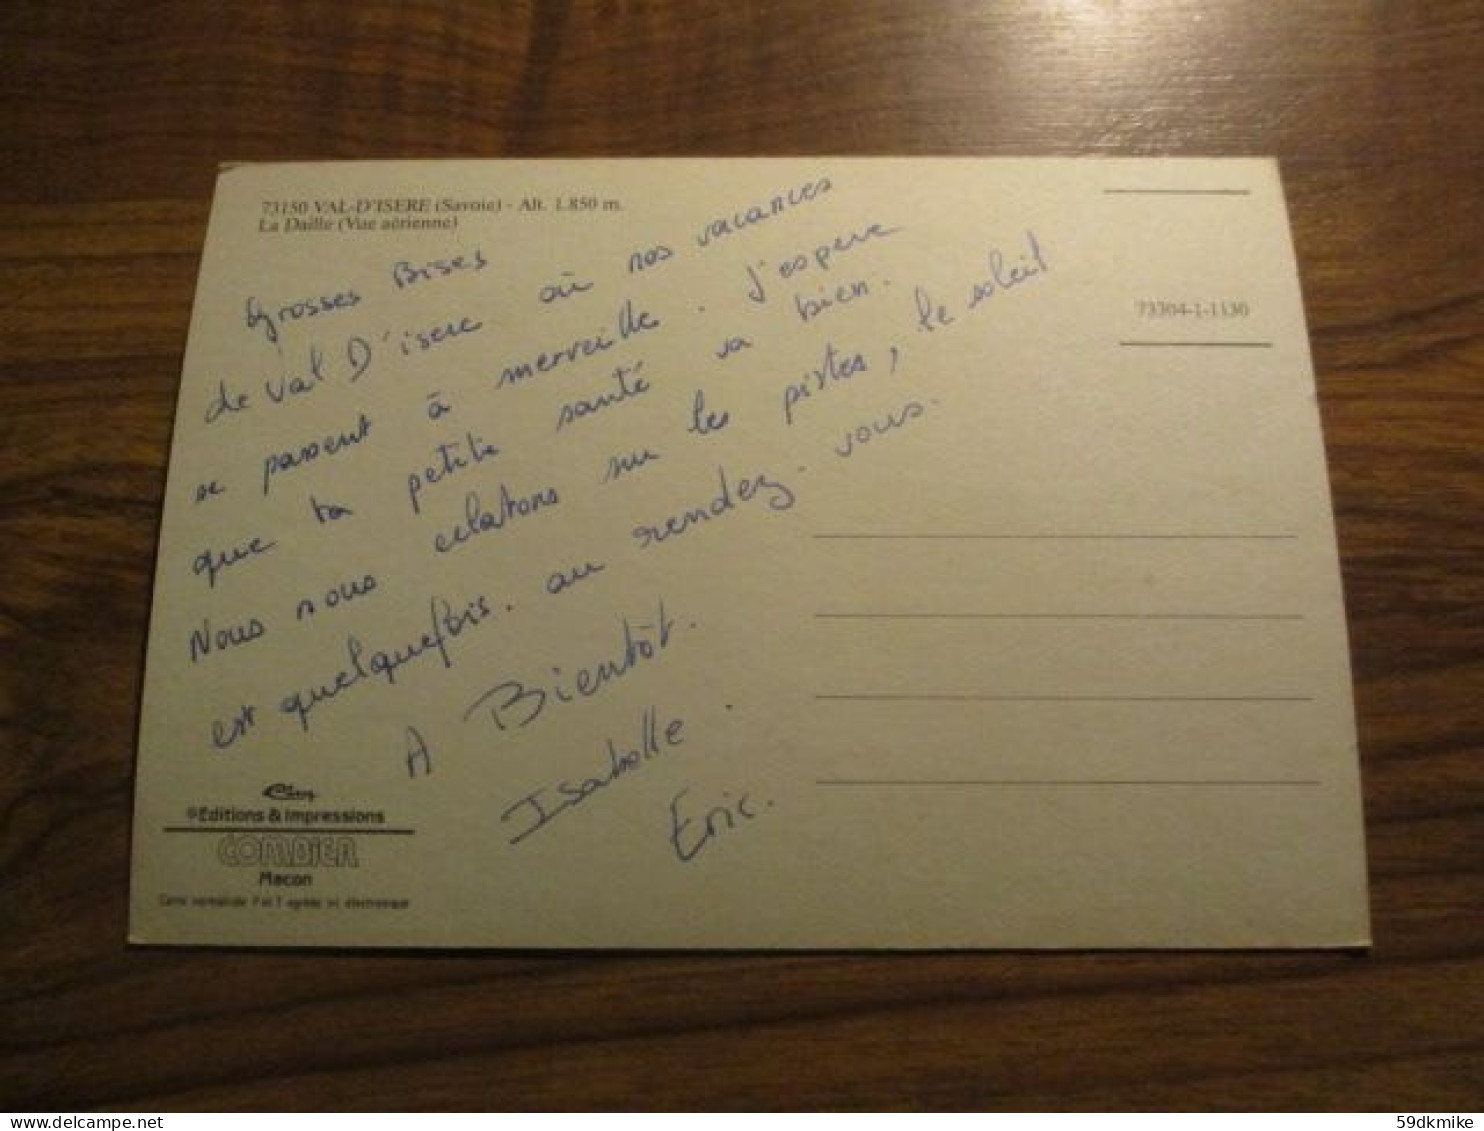 73150 VAL-D'ISERE (Savoie) - Alt. 1.850 m.
La Daille (Vue aérienne)
Grosses Bises
de Val D'isere où nos vacances
se passent à merveille. J'espere
que ta petite santé va bien.
Nous nous eclatons sur les pistes, le soleil
est quelquefois au rendez-vous.
A Bientôt.
Isabelle.
Eric.
73304-1-1130
Cim
© Editions & Impressions
COMBIER
Macon
Carte normalisée P et T agréée int. électronique
59dkmike